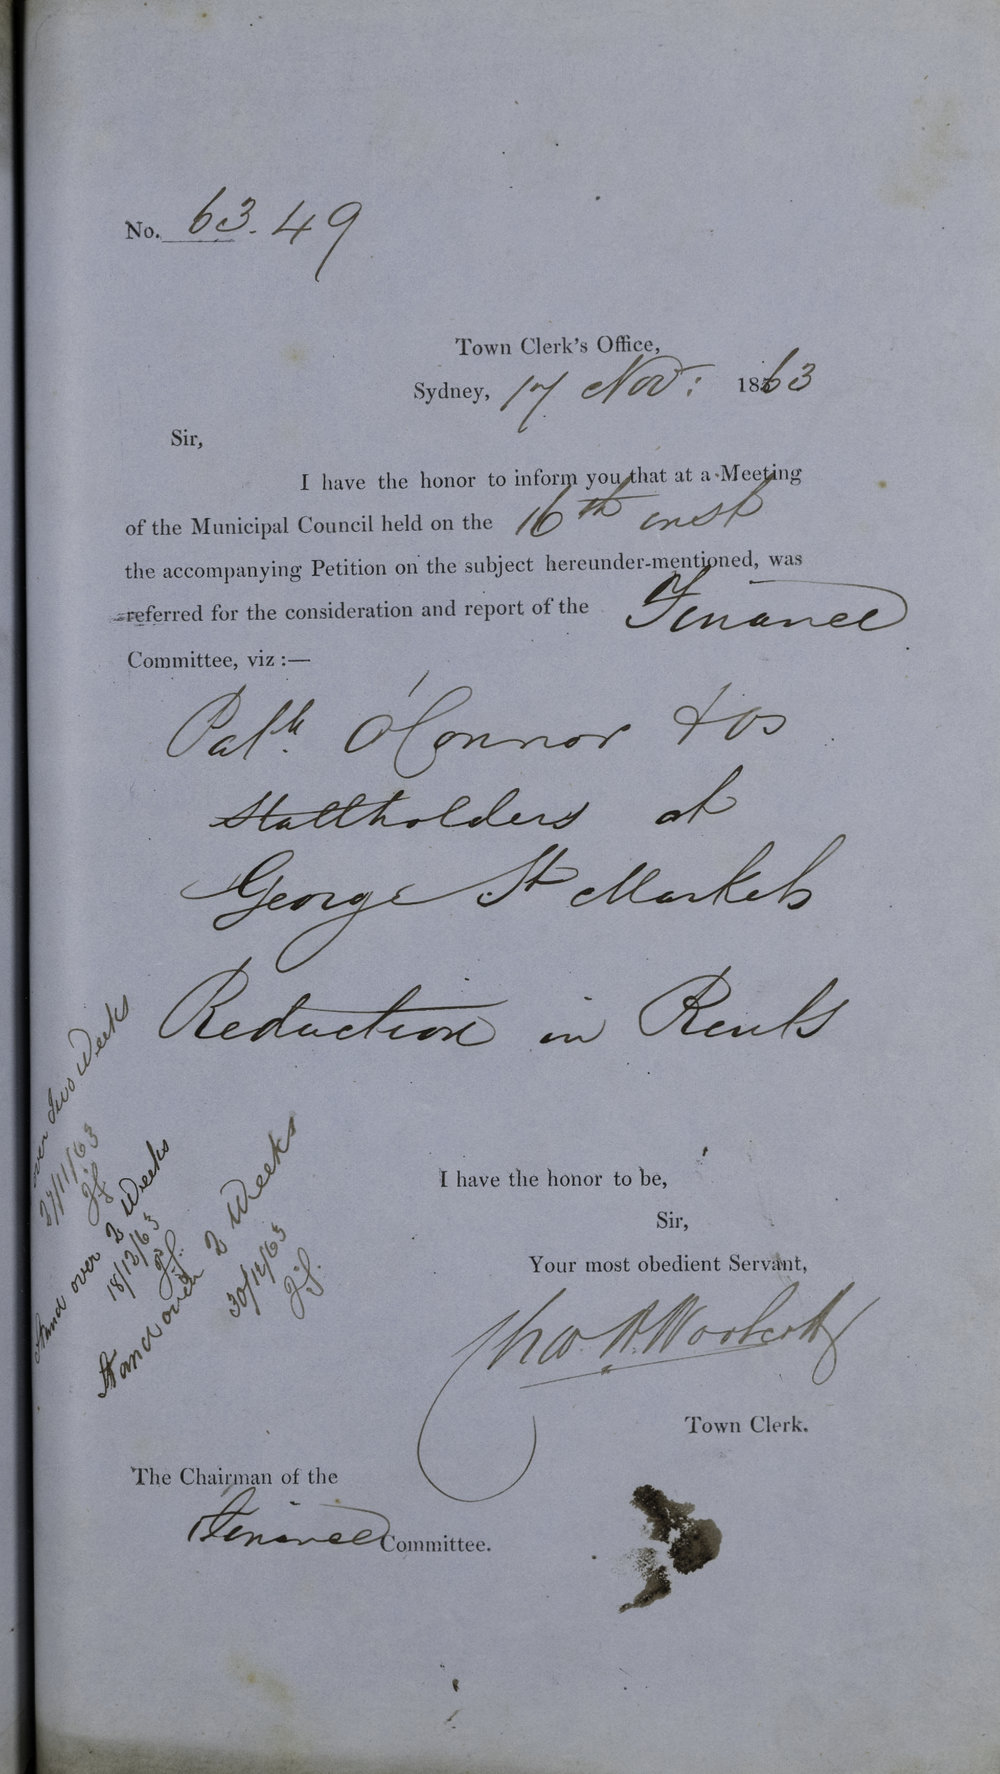 No. 63.49
Town Clerk's Office,
Sydney, 17 Nov: 1863
Sir,
I have the honor to inform you that at a Meeting
of the Municipal Council held on the 16th inst
the accompanying Petition on the subject hereunder-mentioned, was
referred for the consideration and report of the Finance
Committee, viz :—
Patk O'Connor & Os
Stallholders at
George St Markets
Reduction in Rents
over Two Weeks
27/11/63
Stand over 2 Weeks
18/12/63
Stand over 2 Weeks
30/12/63
I have the honor to be,
Sir,
Your most obedient Servant,
Chas H. Woolcott
Town Clerk.
The Chairman of the
Finance Committee.